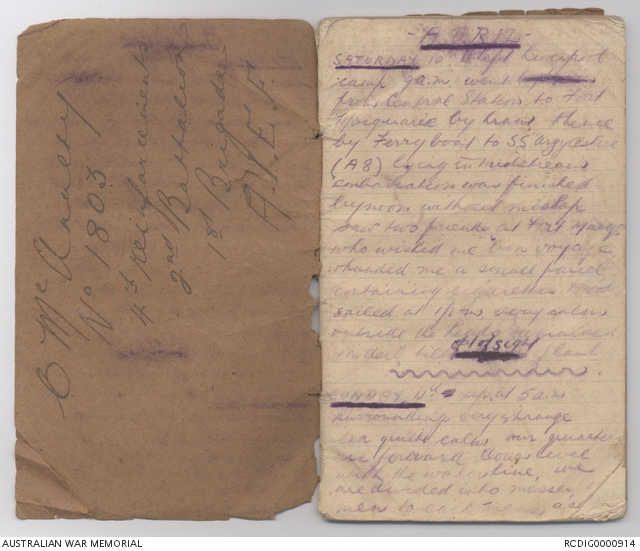 C McAnulty
No 1803
4th Reinforcements
2nd Battalion
1st Brigade
A.I.E.F.
- APRIL -
SATURDAY 10th left Liverpool
camp 9am went
from Central Station to Fort
Macquarie by tram thence
by Ferry boat to SS Argyllshire
(A8) lying in midstream
embarkation was finished
by noon without mishap
saw two friends at Fort Macq
who wished me "bon voyage
& handed me a small parcel
containing cigarettes
sailed at 1pm very calm
outside the heads remained
on deck till out of sight land
SUNDAY up at 5am
surrounding very strange
sea quite calm our quarters
are forward down level
with the water line, we
are divided into messes
men to each mess, as
AUSTRALIAN WAR MEMORIAL
RCDIG0000914